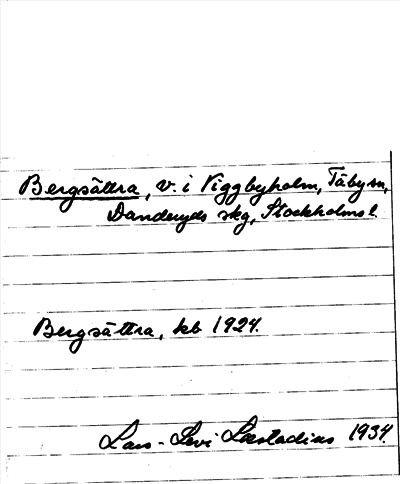 Bergsättra, v. i Viggbyholm, Täby sn,
Danderyds skg, Stockholms l.
Bergsättra, kb 1924.
Lars-Levi Læstadius 1934.